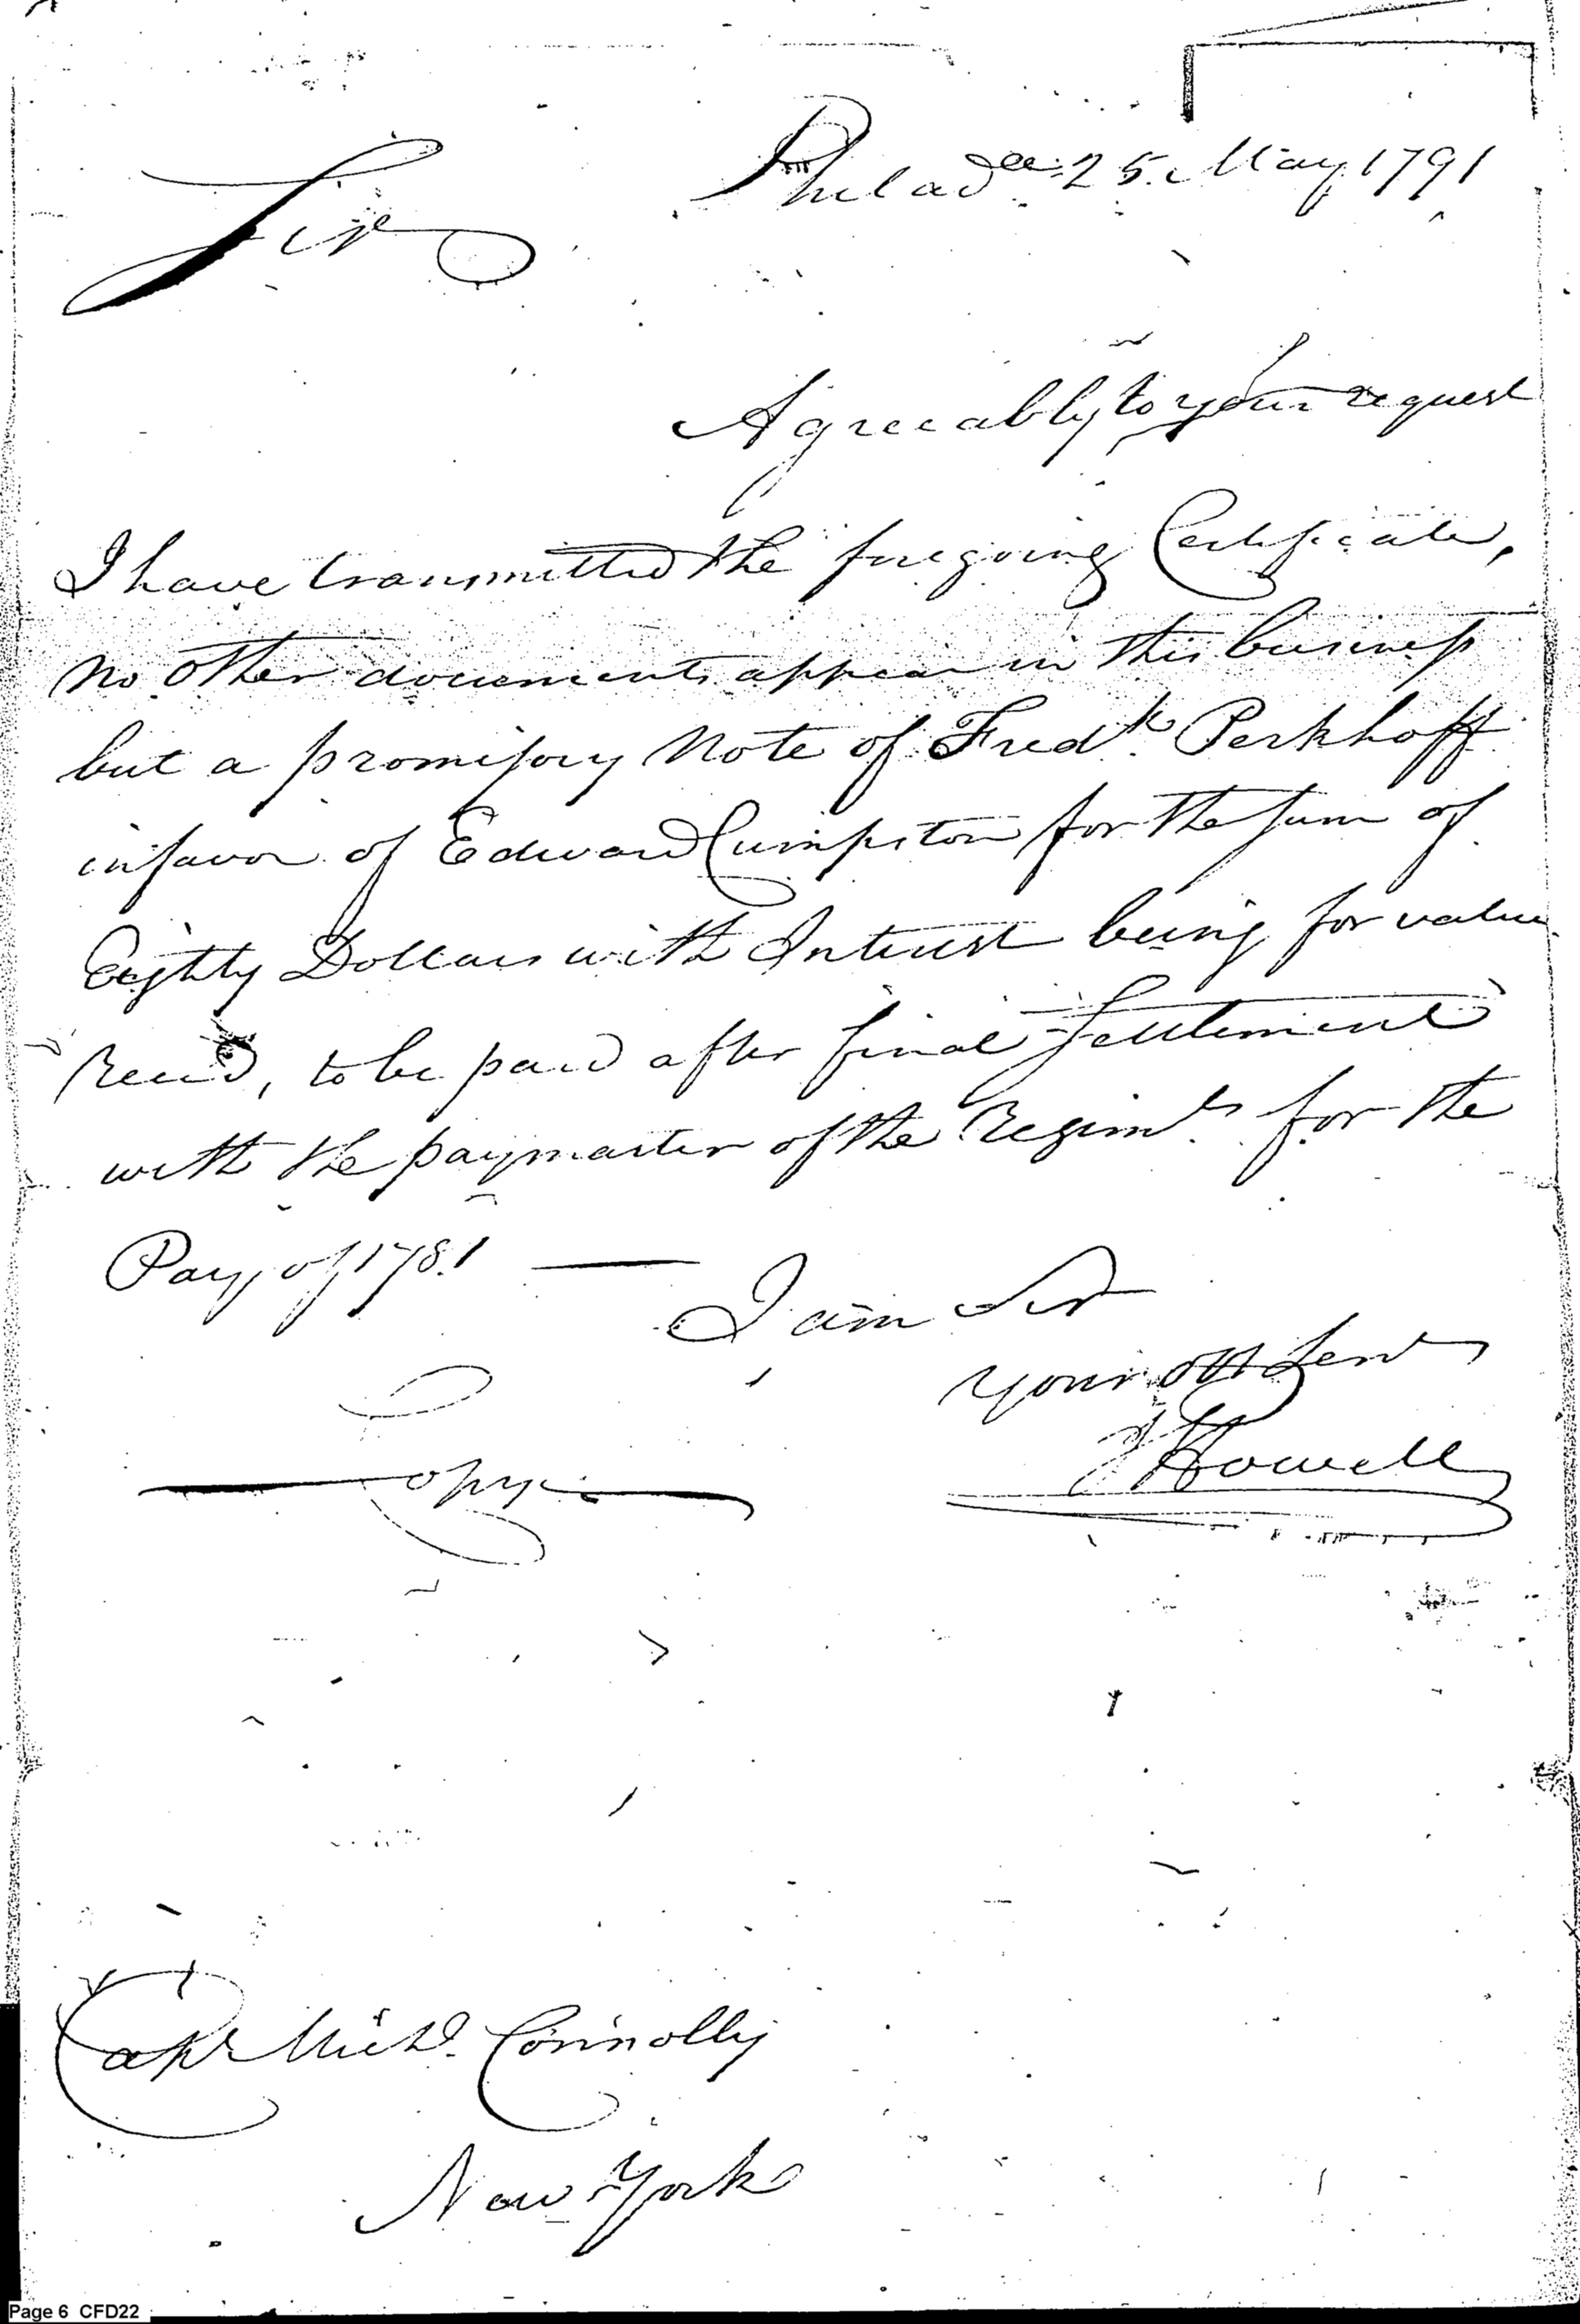 Philada. 25. May 1791
Sir
Agreeably to your request
I have transmitted the foregoing Certificate,
no other documents appear in this business
but a promissory Note of Fredk. Perkhoff
in favor of Edward Cumpston for the sum of
Eighty Dollars with Interest being for value
Recd, to be paid after final Settlement
with the paymaster of the Regimts. for the
Pay of 1781 —
I am Sir
your obt Servt
J Howell
Copy
Capt Michl. Connolly
New York
Page 6 CFD22